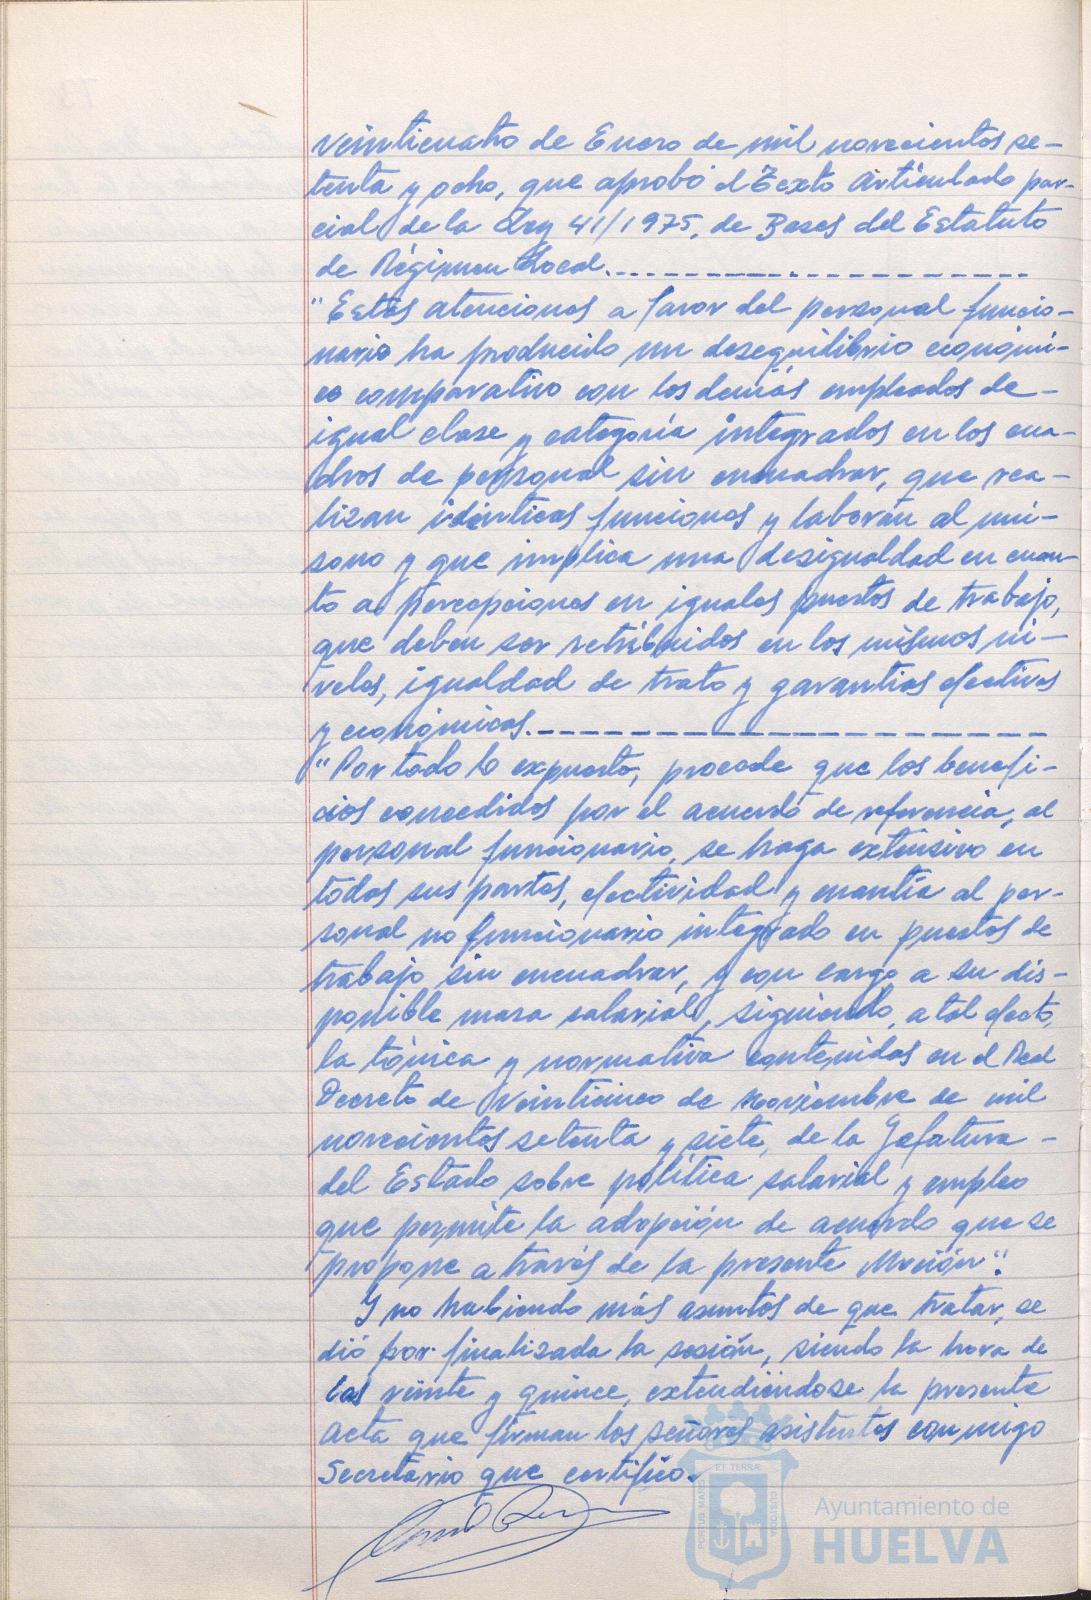 veinticuatro de Enero de mil novecientos se-
tenta y ocho, que aprobó el Texto articulado par-
cial de la Ley 41/1975, de Bases del Estatuto
de Régimen Local.
"Estas atenciones a favor del personal funcio-
nario ha producido un desequilibrio económi-
co comparativo con los demás empleados de
igual clase y categoría integrados en los cua-
dros de personal sin encuadrar, que rea-
lizan idénticas funciones y laboran al uní-
sono y que implica una desigualdad en cuan-
to a percepciones en iguales puestos de trabajo,
que deben ser retribuidos en los mismos ni-
veles, igualdad de trato y garantías efectivas
y económicas.
"Por todo lo expuesto, procede que los benefi-
cios concedidos por el acuerdo de referencia, al
personal funcionario, se haga extensivo en
todas sus partes, efectividad y cuantía al per-
sonal no funcionario integrado en puestos de
trabajo sin encuadrar, y con cargo a su dis-
ponible masa salarial, siguiendo, a tal efecto,
la tónica y normativa contenidas en el Real
Decreto de veinticinco de noviembre de mil
novecientos setenta y siete, de la Jefatura -
del Estado sobre política salarial y empleo
que permite la adopción de acuerdo que se
propone a través de la presente Moción".
Y no habiendo más asuntos de que tratar, se
dió por finalizada la sesión, siendo la hora de
las veinte y quince, extendiéndose la presente
acta que firman los señores asistentes conmigo
Secretario que certifico.
PORTUS MARIS ET TERRAE CUSTODIA
Ayuntamiento de
HUELVA